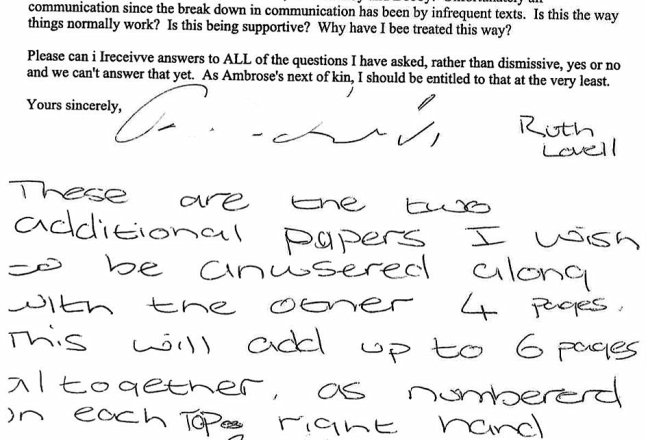 communication since the break down in communication has been by infrequent texts. Is this the way
things normally work? Is this being supportive? Why have I bee treated this way?
Please can i Ireceivve answers to ALL of the questions I have asked, rather than dismissive, yes or no
and we can't answer that yet. As Ambrose's next of kin, I should be entitled to that at the very least.
Yours sincerely,
Ruth
Lovell
These are the two
additional papers I wish
to be anwsered along
with the other 4 pages.
This will add up to 6 pages
altogether, as numbererd
on each TOP right hand